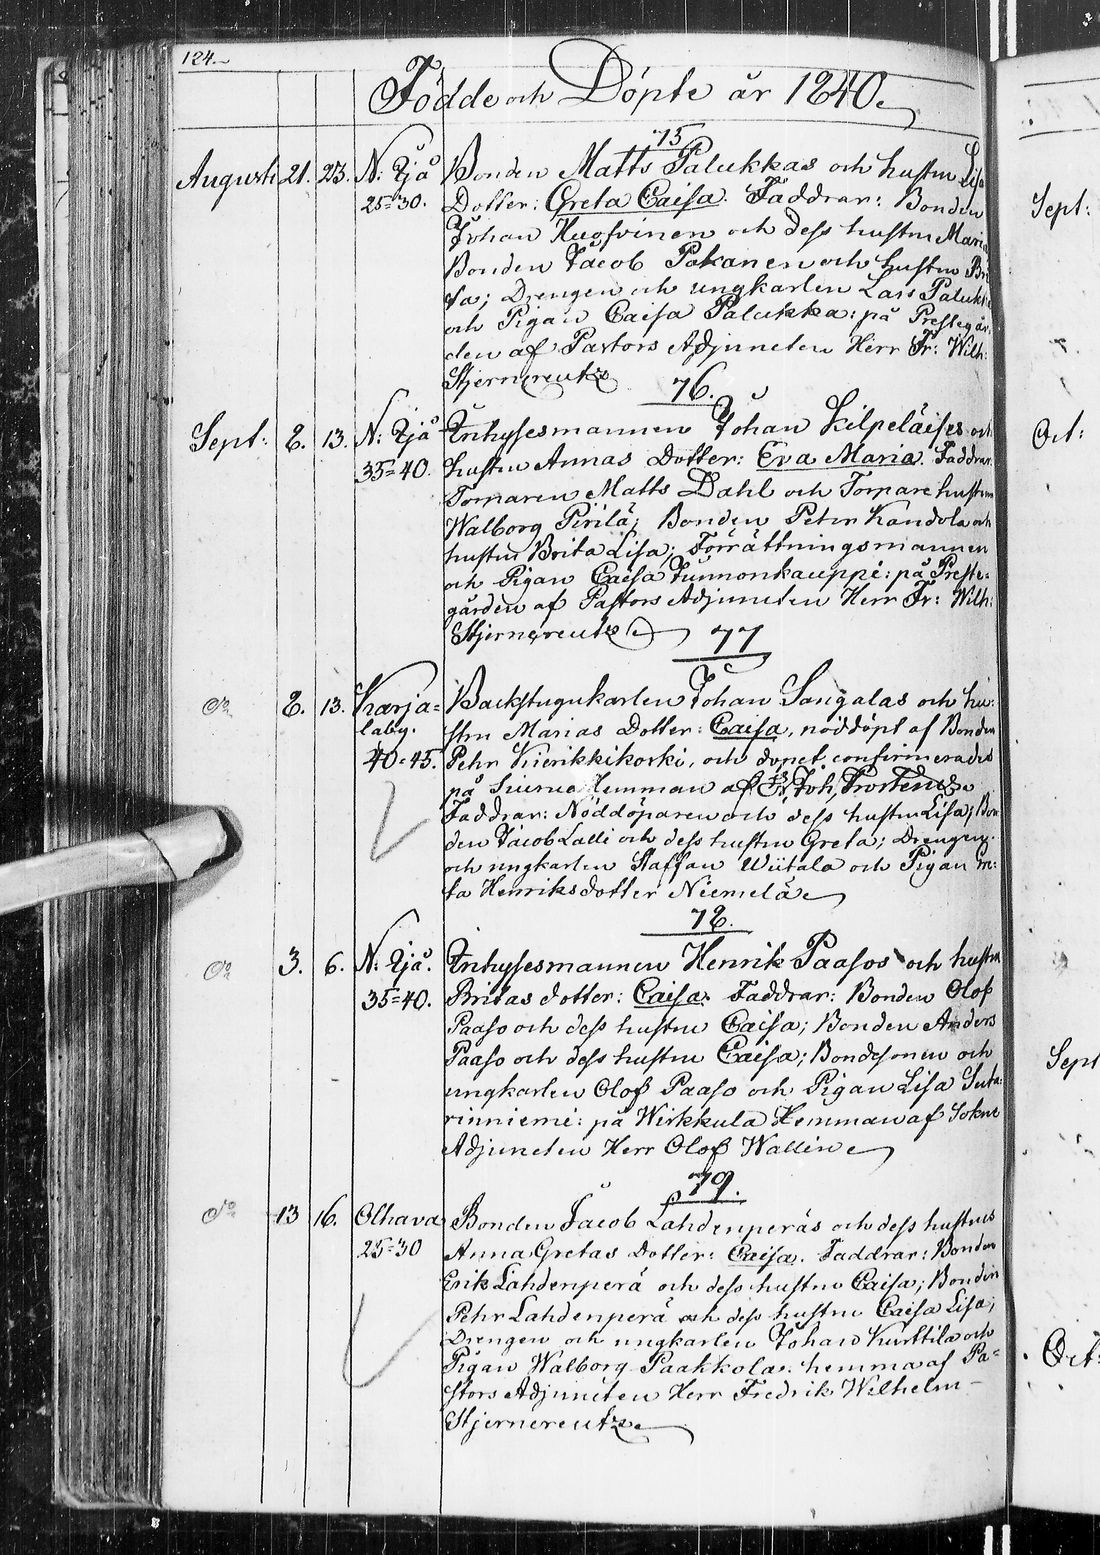 124.
Födde och Döpte år 1840.
75
Augusti 21. 23. N: Ijå Bonden Matts Palukkas och hustru Lisa
25=30. Dotter: Greta Caisa. Faddrar: Bonden
Johan Huofvinen och dess hustru Maria
Bonden Jacob Pakanen och hustru Bri
ta; Drengen och ungkarlen Lars Palukka
och Pigan Caisa Palukka: på Prestegår
den af Pastors Adjuncten Herr Fr: Wilh:
Stjerncreutz
76.
Sept: 2. 13. N: Ijå Inhysesmannen Johan Kilpeläises och
35=40. hustru Annas Dotter: Eva Maria. Faddrar:
Torparen Matts Dahl och Torpare hustrun
Walborg Pirilä; Bonden Peter Kandola och
hustru Brita Lisa; Förrättningsmannen
och Pigan Caisa Tunnonkauppi: på Preste-
gården af Pastors Adjuncten Herr Fr: Wilh:
Stjerncreutz
77
Do 2. 13. Karja= Backstugukarlen Johan Sangalas och hu-
laby. stru Marias Dotter: Caisa, nöddöpt af Bonden
40=45. Pehr Kuerikkikoski, och dopet confirmerades
på Hemman af Joh. Frosterus
Faddrar: Nöddöparen och dess hustru Lisa; Bon
den Jacob Lalli och dess hustru Greta; Drengen
och ungkarlen Staffan Wiitala och Pigan Gre:
ta Henriksdotter Niemelä
78.
Do 3. 6. N: Ijå. Inhysesmannen Henrik Paasos och hustru
35=40. Britas dotter: Caisa. Faddrar: Bonden Olof
Paaso och dess hustru Caisa; Bonden Anders
Paaso och dess hustru Caisa; Bondesonen och
ungkarlen Olof Paaso och Pigan Lisa Suta-
rinniemi: på Wirkkula Hemman af Sokne
Adjuncten Herr Olof Wallin
79.
Do 13 16. Olhava Bonden Jacob Lahdenperäs och dess hustrus
25=30 Anna Gretas Dotter: Caisa. Faddrar: Bonden
Erik Lahdenperä och dess hustru Caisa; Bonden
Pehr Lahdenperä och dess hustru Caisa Lisa;
Drengen och ungkarlen Johan Kurttila och
Pigan Walborg Paakkola: hemma af Pa=
stors Adjuncten Herr Fredrik Wilhelm
Stjerncreutz
Sept:
Oct:
Sept
Oct: